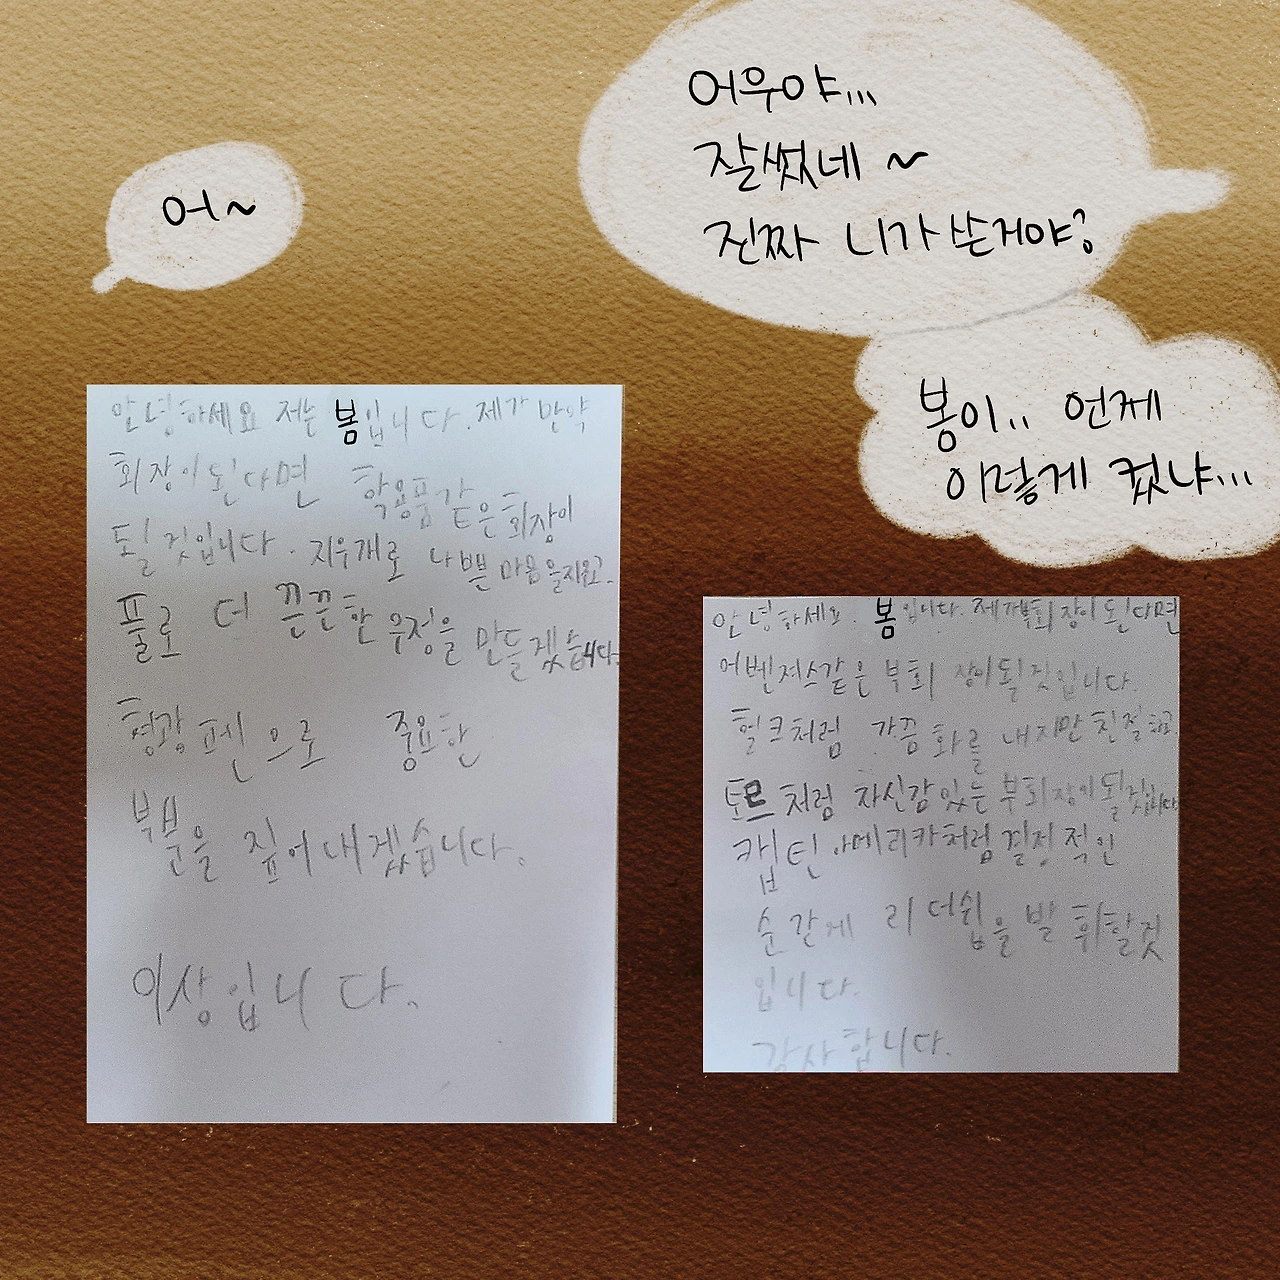 어우야...
잘썼네 ~
진짜 니가 쓴거야?
어~
봉이.. 언제
이렇게 컸냐...
안녕하세요 저는 봄입니다. 제가 만약
회장이된다면 학용품같은회장이
될것입니다. 지우개로 나쁜마음을지우고.
풀로 더 끈끈한 우정을 만들겠습니다.
형광펜으로 중요한
부분을 짚어내겠습니다.
이상입니다.
안녕하세요. 봄입니다. 제가부회장이된다면
어벤져스같은 부회장이될것입니다.
헐크처럼 가끔 화를 내지만 친절하고
토르처럼 자신감있는 부회장이될것입니다
캡틴아메리카처럼결정적인
순간에 리더쉽을발휘할것
입니다.
감사합니다.